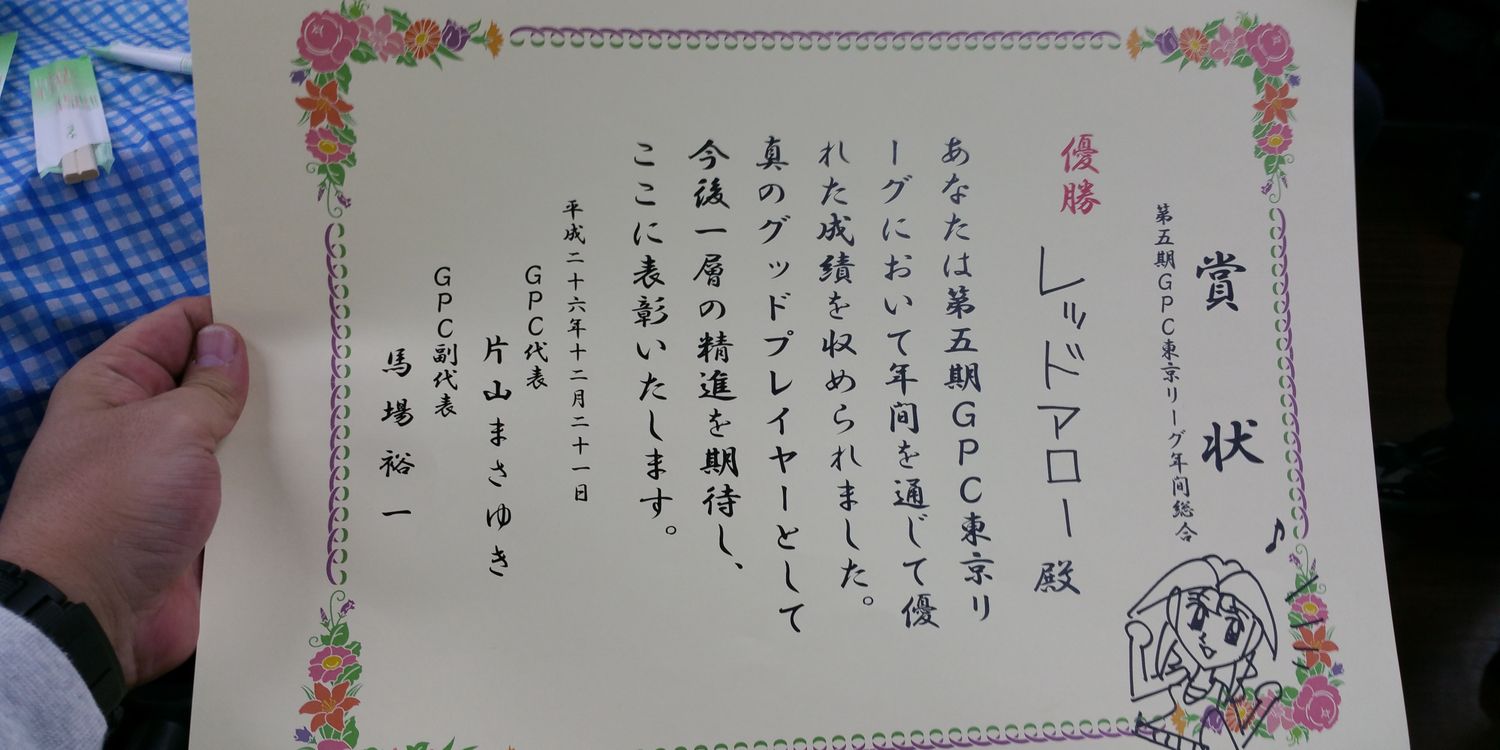 賞状
第五期GPC東京リーグ年間総合
優勝 レッドアロー 殿
あなたは第五期GPC東京リ
ーグにおいて年間を通じて優
れた成績を収められました。
真のグッドプレイヤーとして
今後一層の精進を期待し、
ここに表彰いたします。
平成二十六年十二月二十一日
GPC代表
片山まさゆき
GPC副代表
馬場裕一